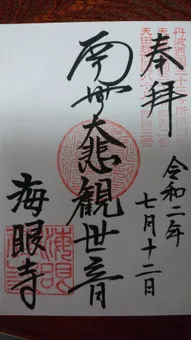 奉拝
令和二年
七月十二日
南無大悲観世音
海眼寺